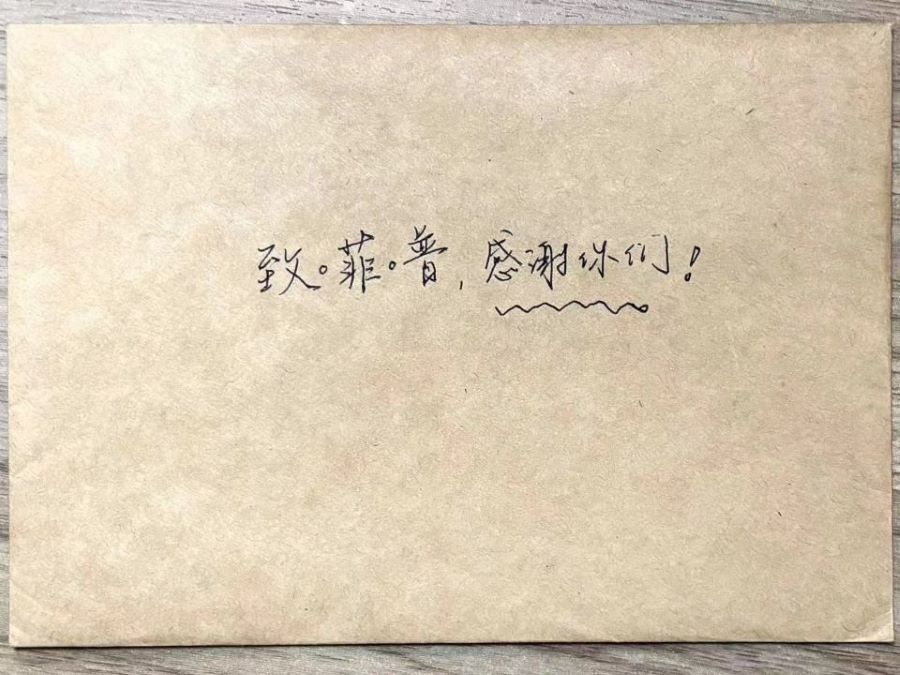 致。菲。普,感谢你们!